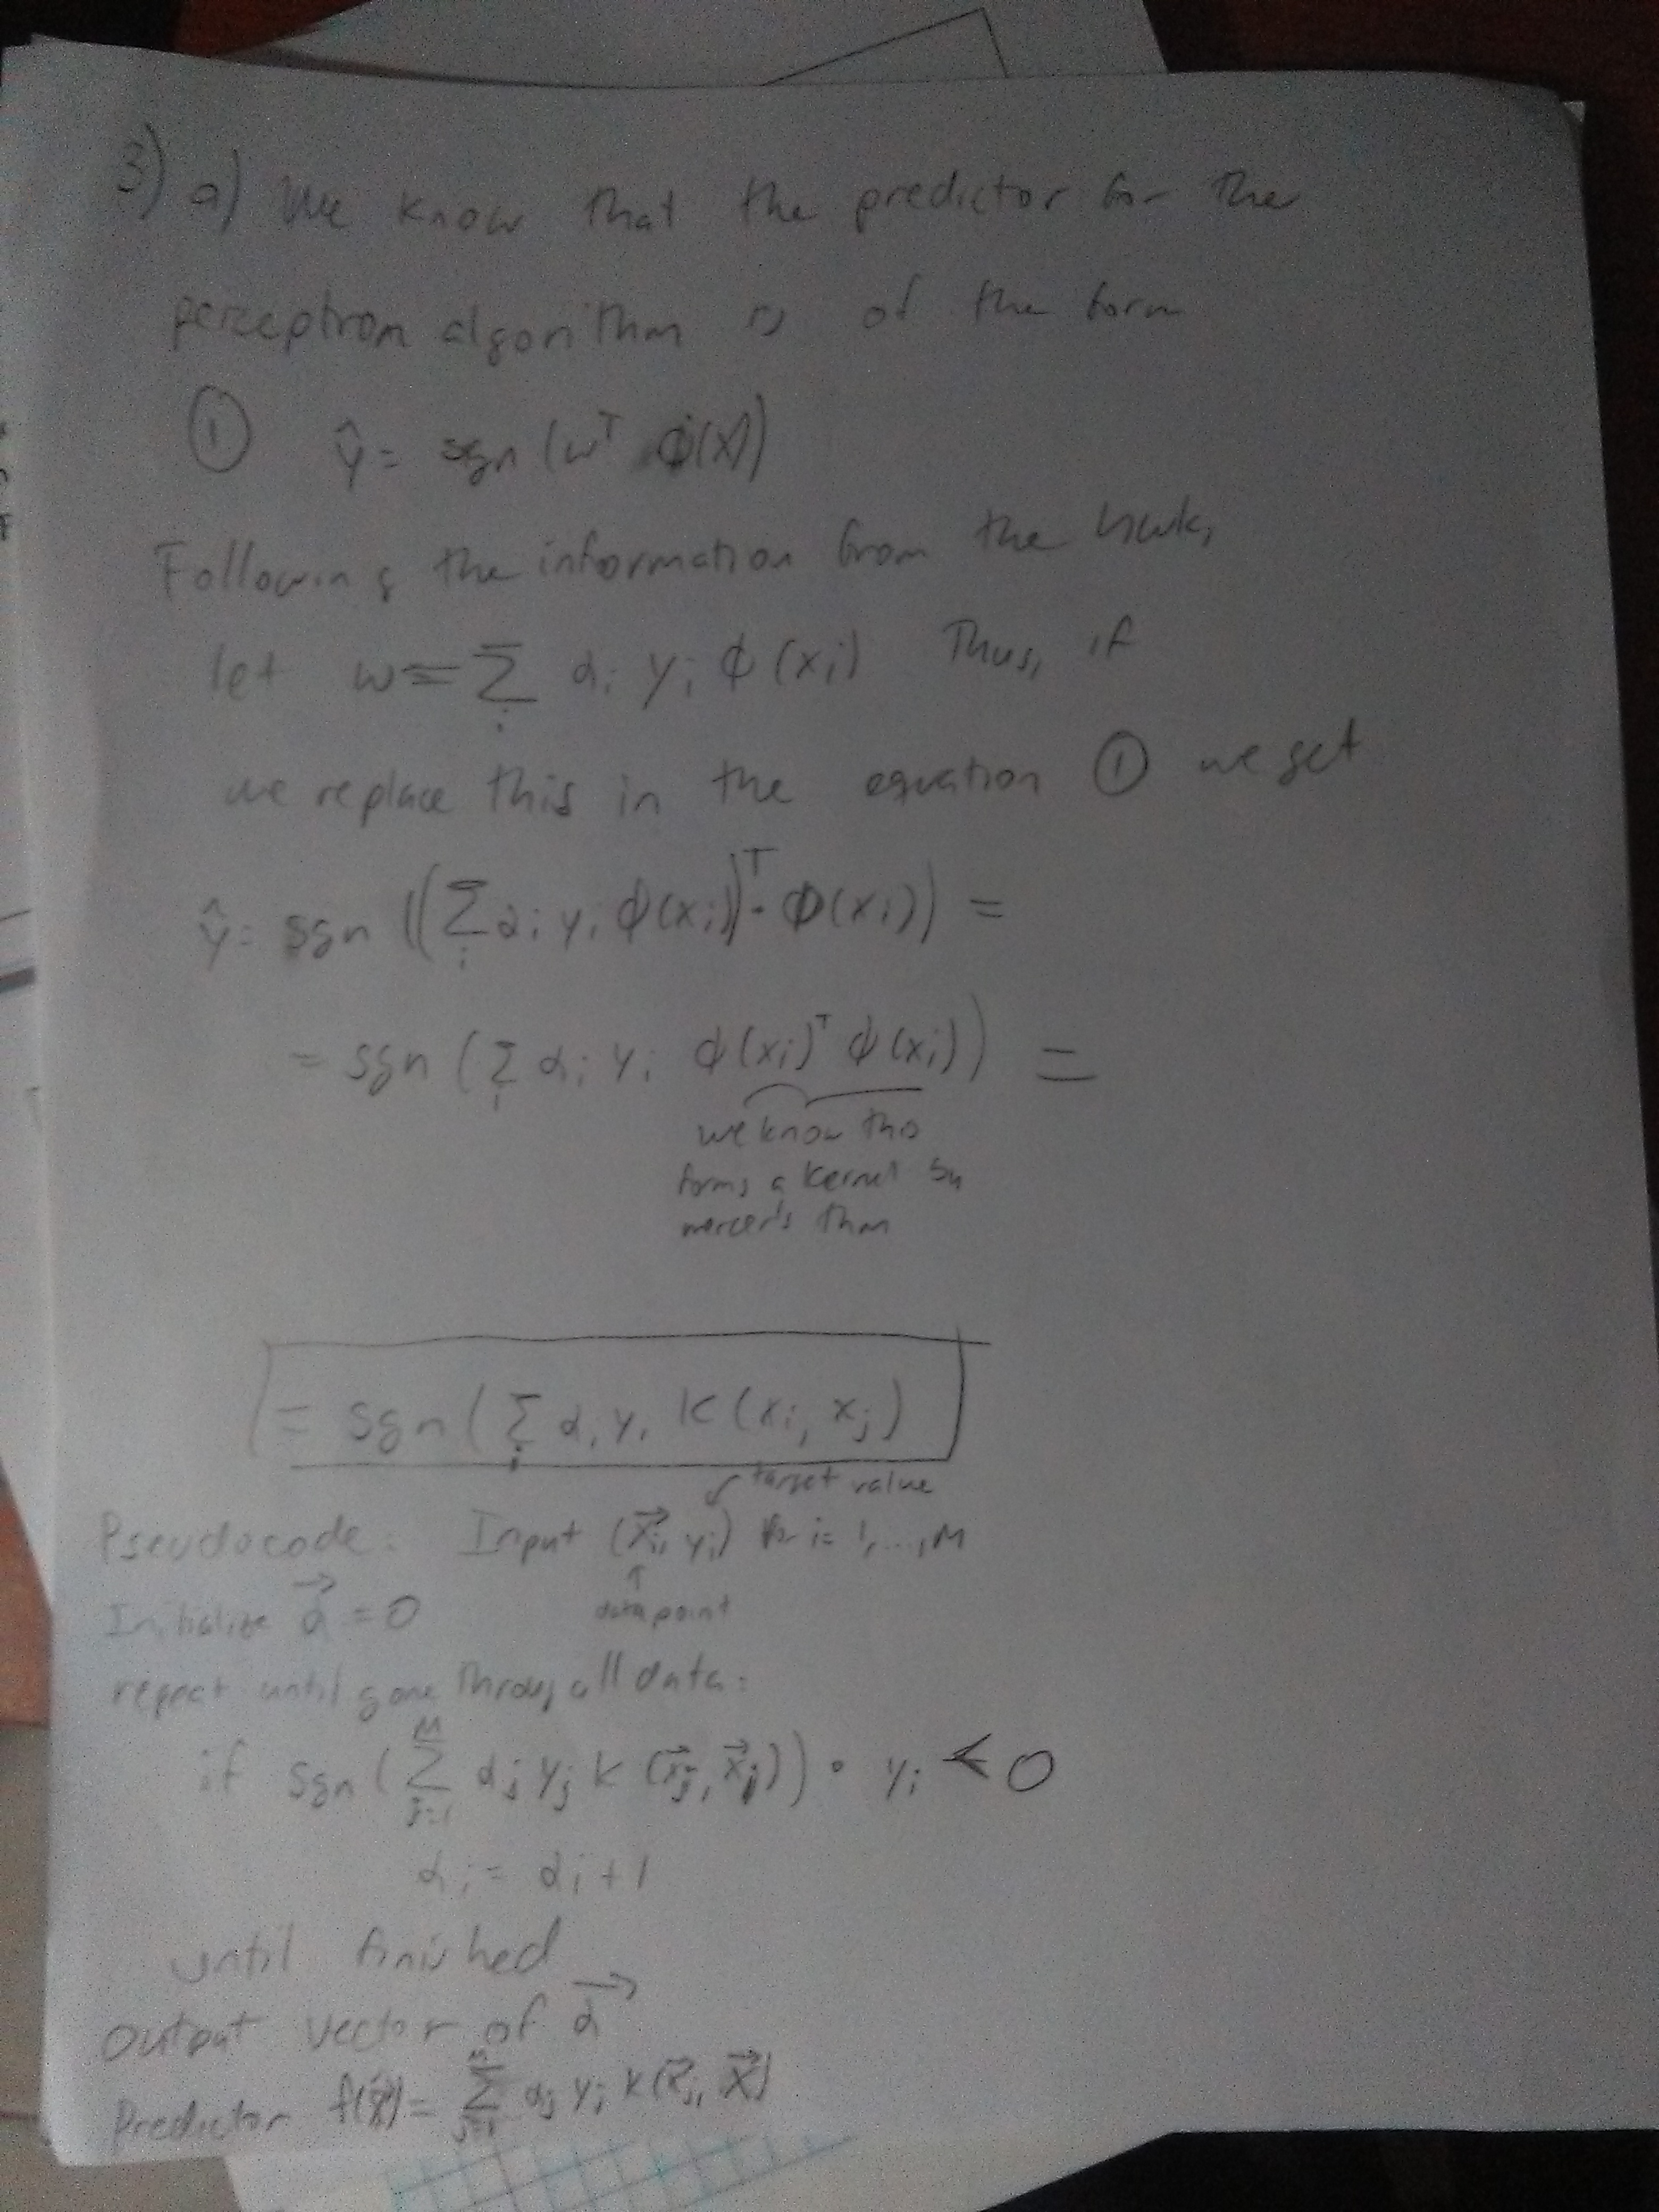 3) a) We know that the predictor for the
perceptron algorithm is of the form
① ŷ = sgn (wᵀ ϕ(x))
Following the information from the hwk,
let w = Σᵢ αᵢ yᵢ ϕ(xᵢ) Thus, if
we replace this in the equation ① we get
ŷ = sgn ((Σᵢ αᵢ yᵢ ϕ(xᵢ))ᵀ · ϕ(xᵢ)) =
= sgn (Σᵢ αᵢ yᵢ ϕ(xᵢ)ᵀ ϕ(xᵢ)) =
we know this
forms a kernel by
mercer's thm
= sgn (Σᵢ αᵢ yᵢ K(xᵢ, xⱼ)
target value
Pseudocode: Input (x⃗ᵢ, yᵢ) for i = 1, ..., M
Initialize α⃗ = 0
data point
repeat until gone throug all data:
if sgn (Σⱼ₌₁ᴹ αⱼ yⱼ K (x⃗ⱼ, x⃗ⱼ)) · yᵢ < 0
αᵢ = αᵢ + 1
until finished
Output vector of α⃗
Predictor f(x⃗) = Σⱼ₌₁ᴹ αⱼ yⱼ K(x⃗ⱼ, x⃗)